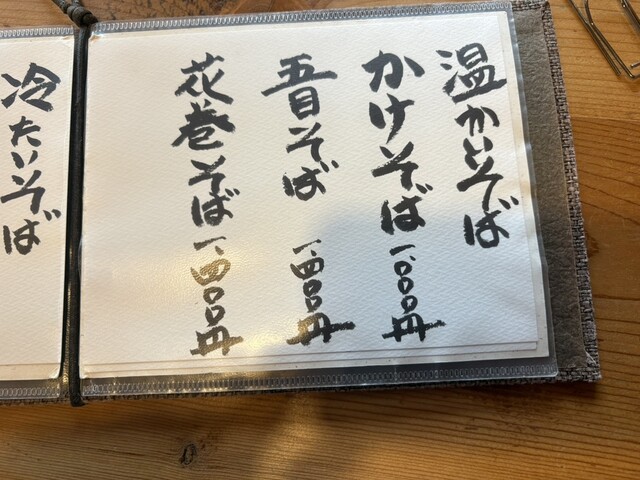 温かいそば
かけそば 一、〇〇〇円
五目そば 一、四〇〇円
花巻そば 一、四〇〇円
冷たいそば